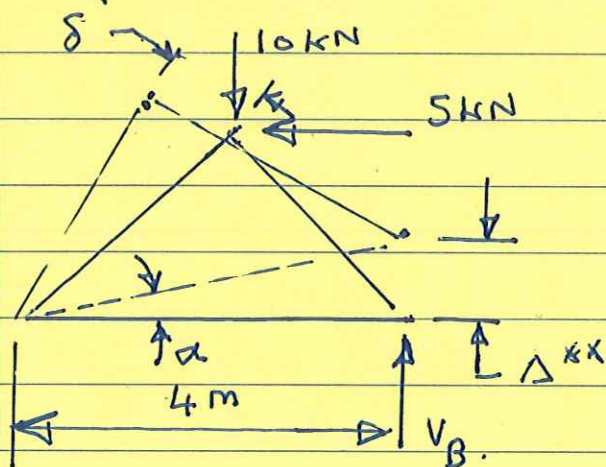 δ 10 kN
5 kN
α
Δ**
4 m
V_B.